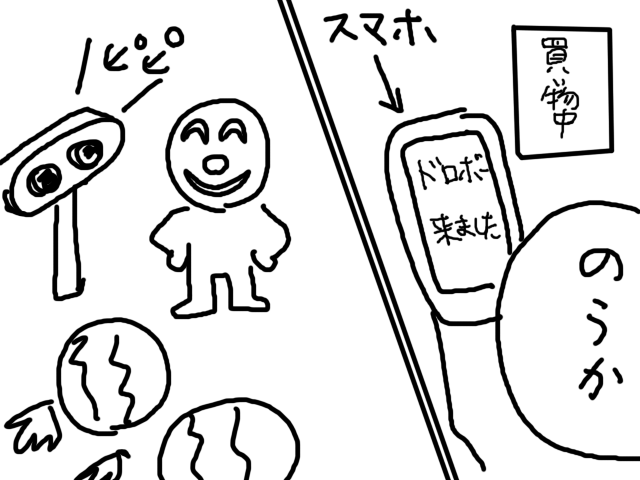 ピピ
スマホ
買い物中
ドロボー
来ました
のうか